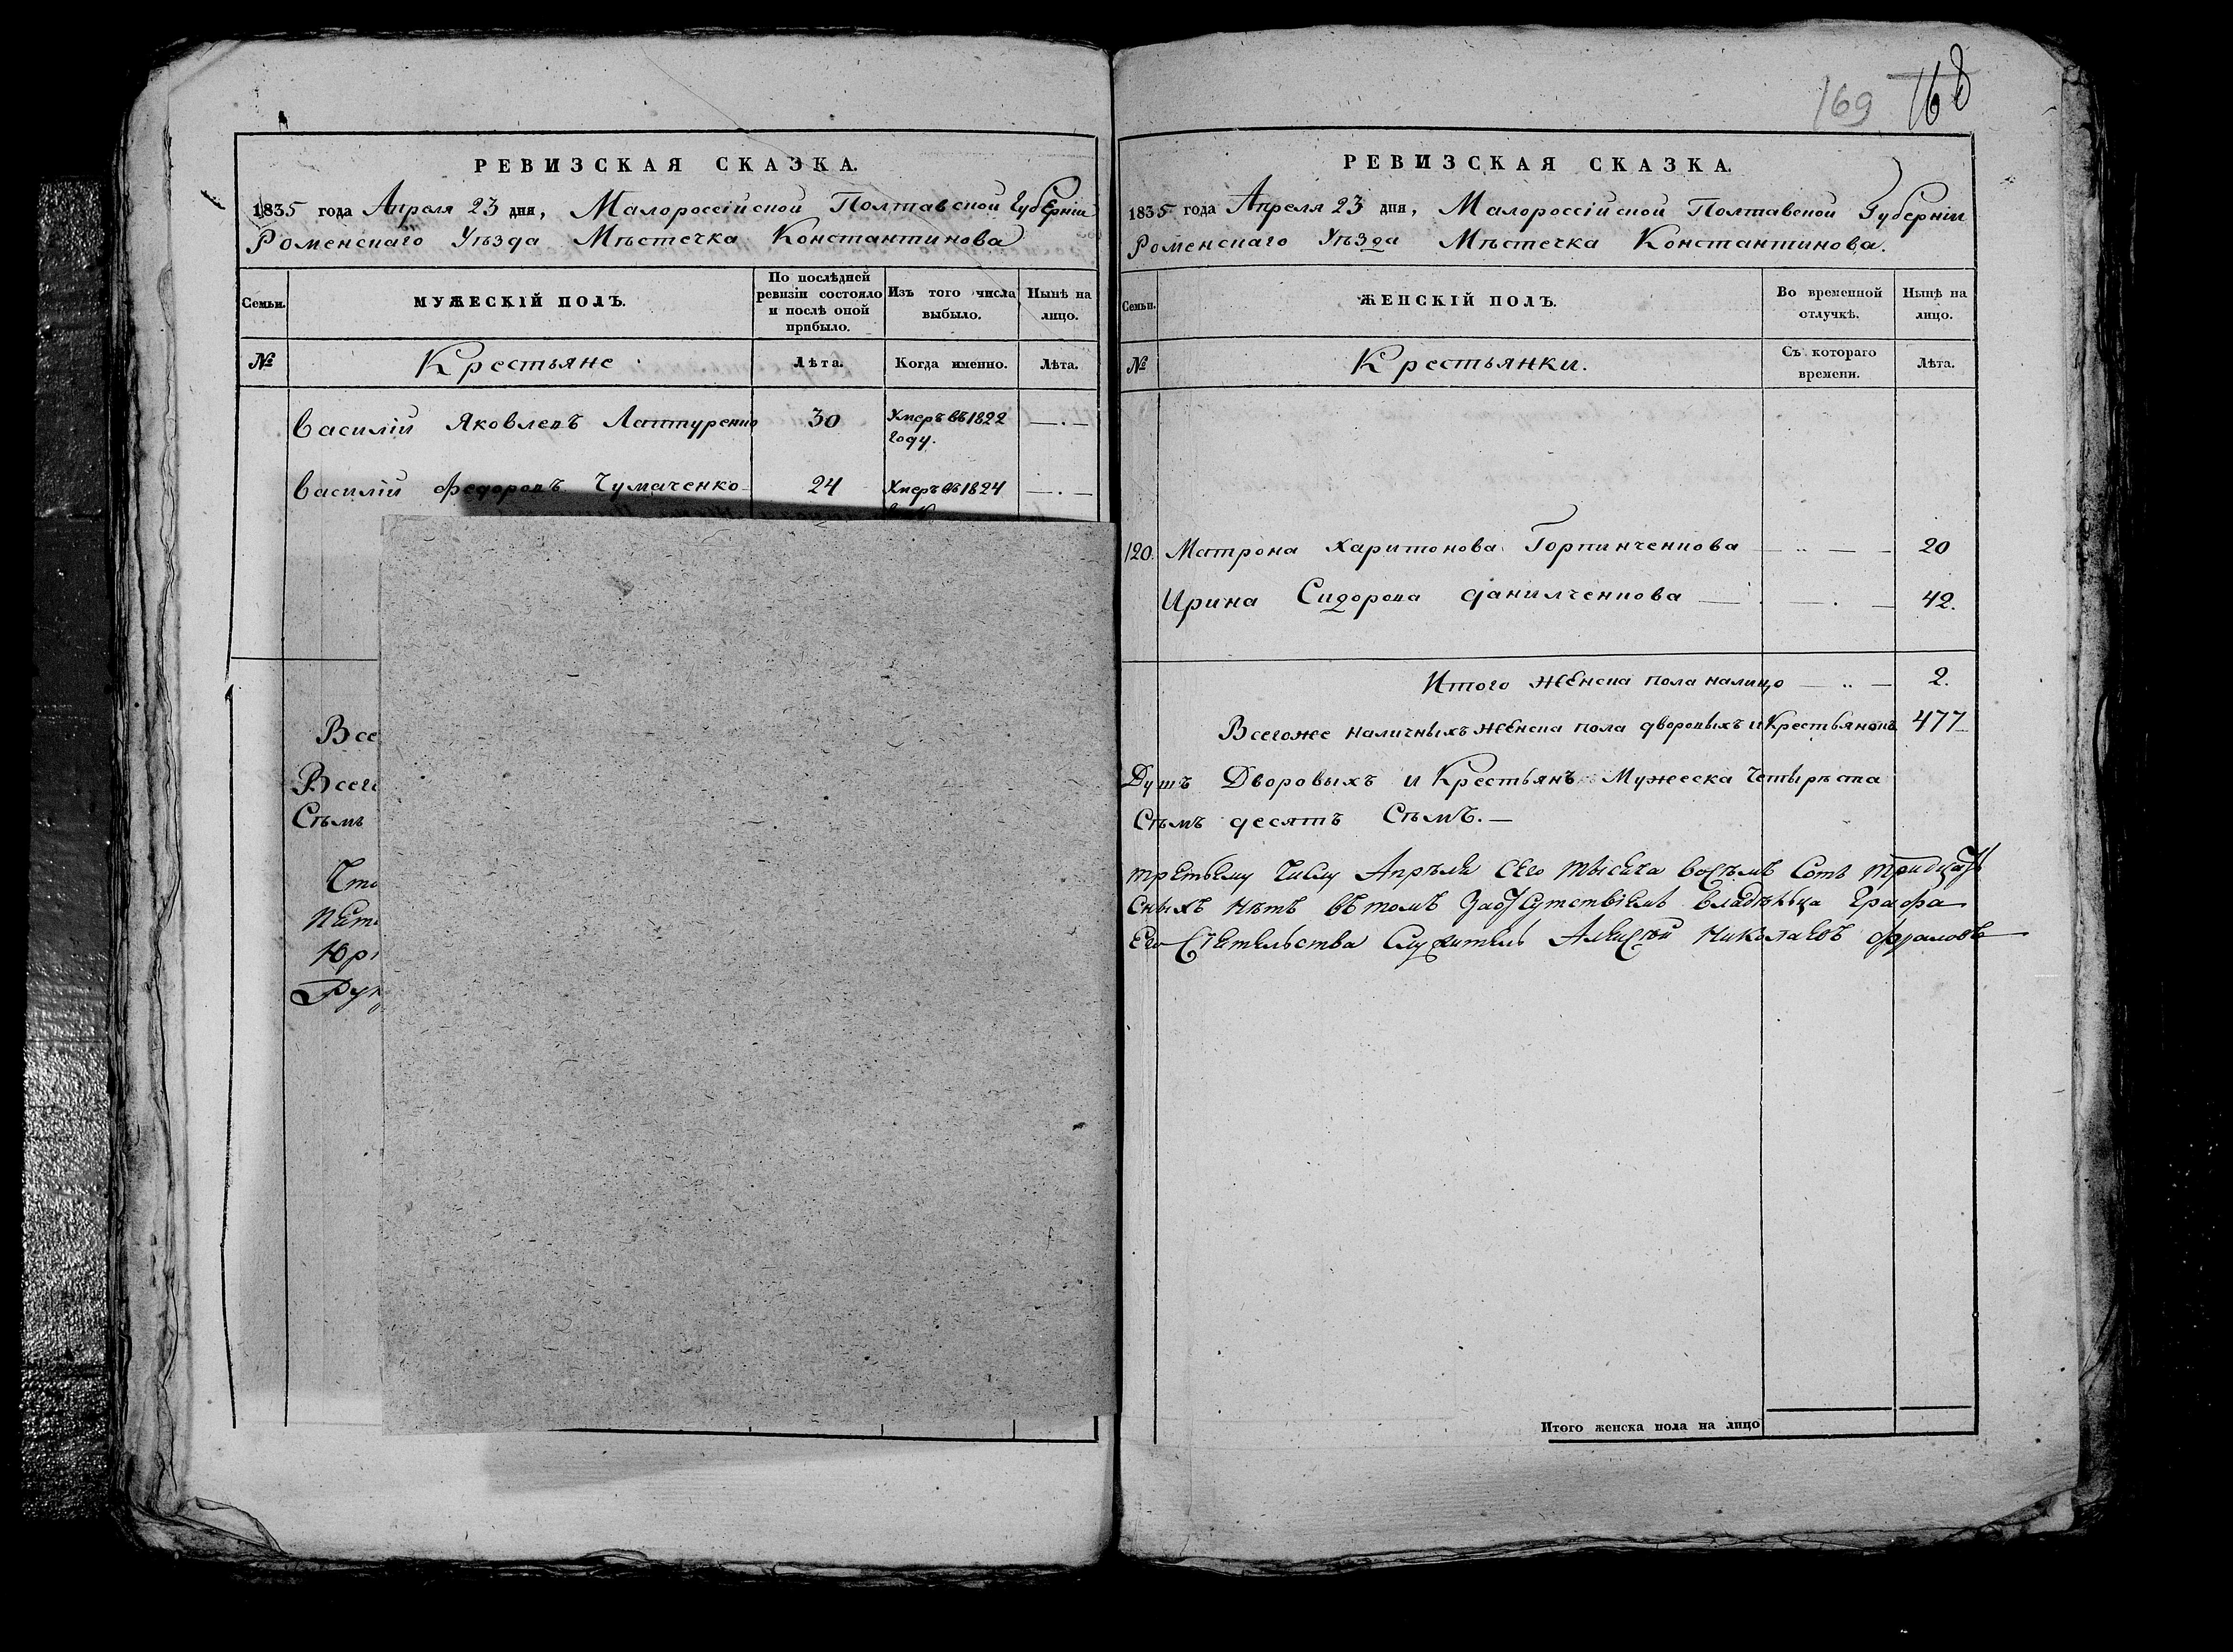 РЕВИЗСКАЯ СКАЗКА.
1835 года Апреля 23 дня, Малороссійской Полтавской Губерніи
Роменскаго Уѣзда Мѣстечка Константинова
Семьи.
МУЖЕСКІЙ ПОЛЪ.
По послѣдней ревизіи состояло и послѣ оной прибыло.
Изъ того числа выбыло.
Нынѣ на лицо.
№ Крестьяне Лѣта. Когда именно. Лѣта.
Василій Яковлевъ Лаптуренко 30 Умеръ въ 1822
году.
Василій Федоровъ Чумаченко 24 Умеръ въ 1824
Все
Всего
Сѣмъ
Что
Рук
169 168
РЕВИЗСКАЯ СКАЗКА.
1835 года Апреля 23 дня, Малороссійской Полтавской Губерніи
Роменскаго Уѣзда Мѣстечка Константинова.
Семьи.
ЖЕНСКІЙ ПОЛЪ.
Во временной отлучкѣ.
Нынѣ на лицо.
№ Крестьянки. Съ котораго времени. Лѣта.
120. Матрона Харитонова Горпинченкова 20
Ирина Сидорова Данилченкова 42.
Итого женска пола налицо 2.
Всегоже наличныхъ женска пола дворовыхъ и Крестьянокъ 477
Душъ Дворовыхъ и Крестьянъ Мужеска Четыреста
Сѣмъ десятъ Сѣмъ.
третьему Числу Апрѣля сего тысеча восѣмъ Сотъ тридцать
сныхъ нѣтъ вѣтомъ За Владѣльца Графа
Его Сіятельства Служитель Алексѣй Николаевъ Фраловъ
Итого женска пола на лицо